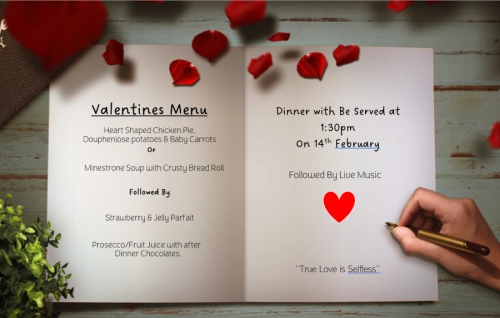 Valentines Menu
Heart Shaped Chicken Pie,
Doupheniose potatoes & Baby Carrots
Or
Minestrone Soup with Crusty Bread Roll
Followed By
Strawberry & Jelly Parfait
Prosecco/Fruit Juice with after
Dinner Chocolates.
Dinner with Be Served at
1:30pm
On 14th February
Followed By Live Music
"True Love is Selfless"